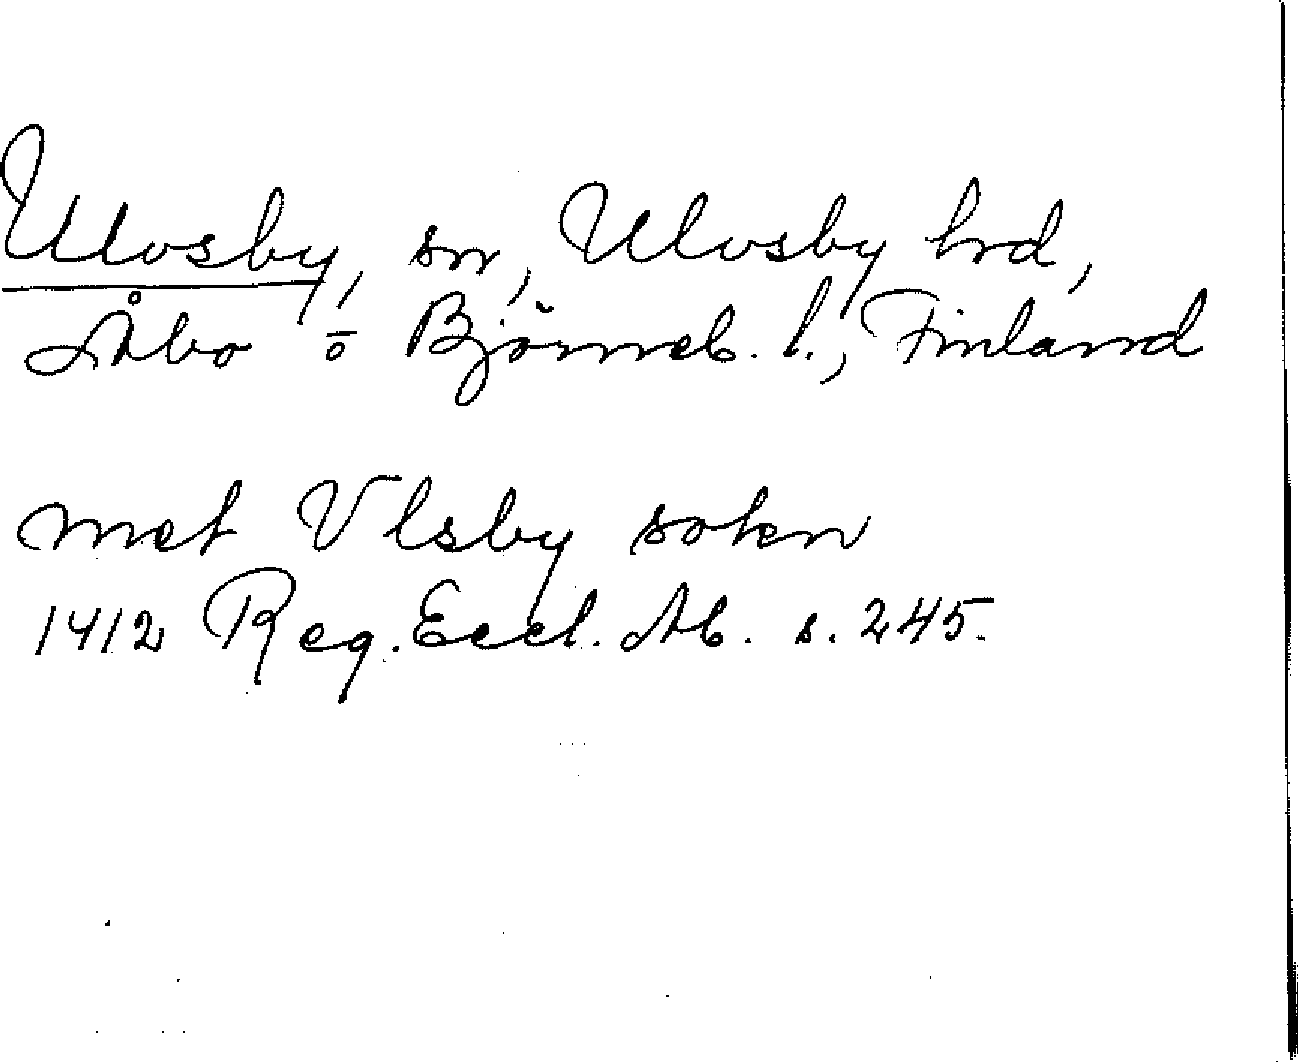 Ulvsby, sn, Ulvsby hrd,
Åbo o Björneb. l., Finland
met Vlsby soken
1412 Reg. Eccl. Ab. s. 245.